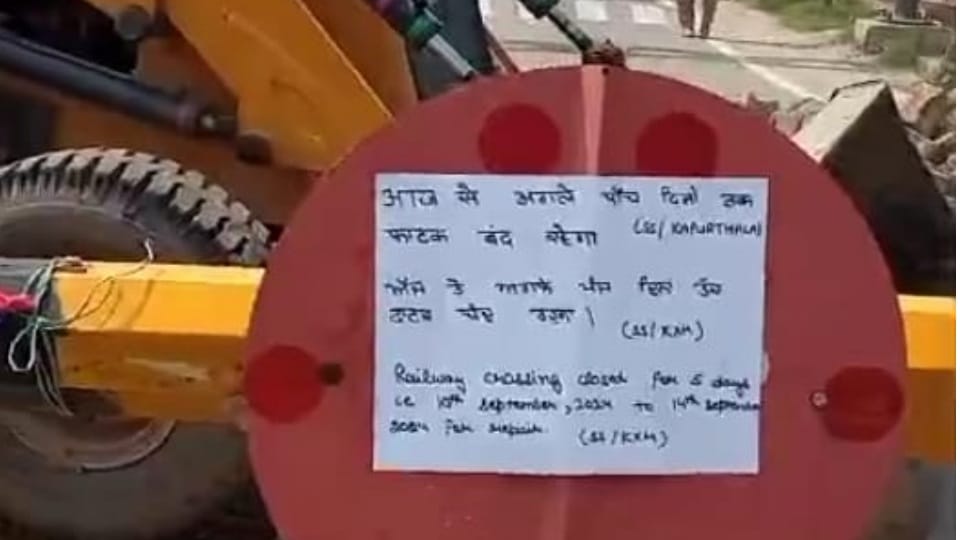 आज से अगले पाँच दिनों तक
फाटक बंद रहेगा (SS/ KAPURTHALA)
ਅੱਜ ਤੋਂ ਅਗਲੇ ਪੰਜ ਦਿਨਾਂ ਤੱਕ
ਫਾਟਕ ਬੰਦ ਰਹੇਗਾ। (SS/KXH)
Railway crossing closed for 5 days
i.e 10th September, 2024 to 14th September
2024 for repair. (SS/KXH)